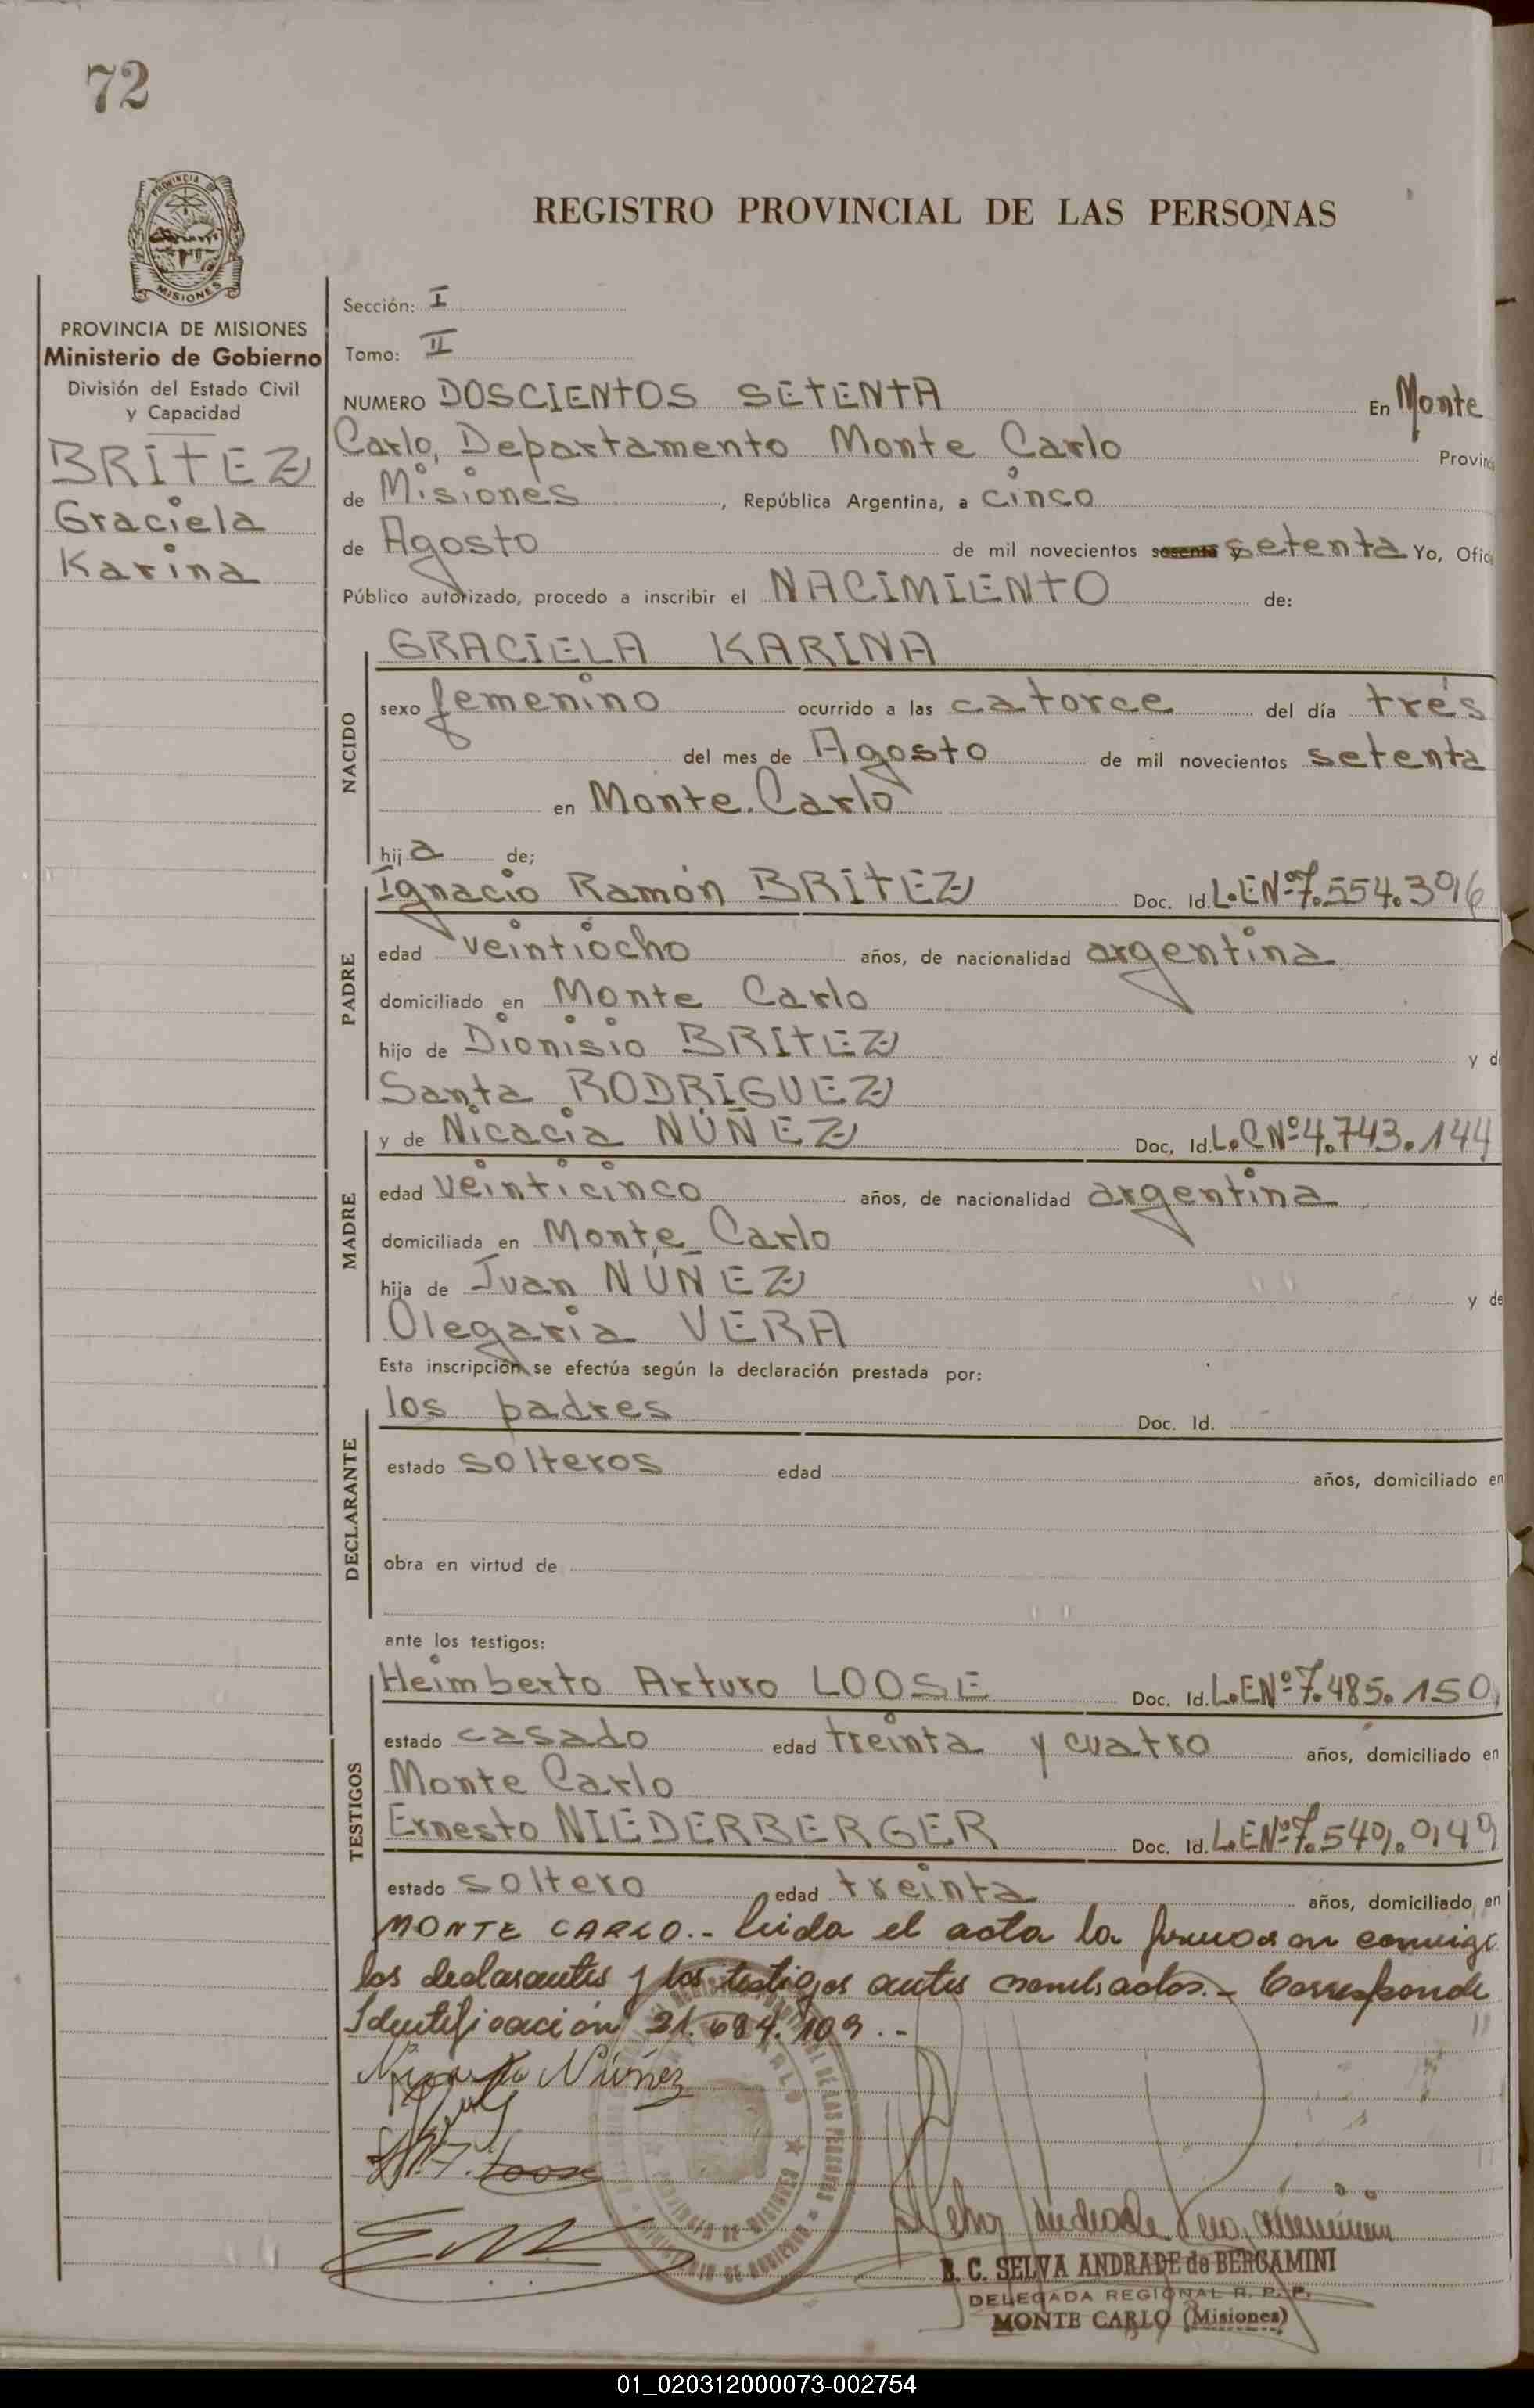 72
PROVINCIA DE
MISIONES
REGISTRO PROVINCIAL DE LAS PERSONAS
PROVINCIA DE MISIONES
Ministerio de Gobierno
División del Estado Civil
y Capacidad
BRITEZ
Graciela
Karina
Sección: I
Tomo: II
NUMERO DOSCIENTOS SETENTA En Monte
Carlo, Departamento Monte Carlo Provinc
de Misiones, República Argentina, a cinco
de Agosto de mil novecientos sesenta y setenta Yo, Ofic
Público autorizado, procedo a inscribir el NACIMIENTO de:
NACIDO
GRACIELA KARINA
sexo femenino ocurrido a las catorce del día tres
del mes de Agosto de mil novecientos setenta
en Monte Carlo
hija de;
PADRE
Ignacio Ramón BRITEZ Doc. Id. L.E Nº 7.554.396
edad veintiocho años, de nacionalidad argentina
domiciliado en Monte Carlo
hijo de Dionisio BRITEZ y d
Santa RODRIGUEZ
MADRE
y de Nicacia NÚÑEZ Doc. Id. L.C Nº 4.743.144
edad veinticinco años, de nacionalidad argentina
domiciliada en Monte Carlo
hija de Juan NUÑEZ y de
Olegaria VERA
Esta inscripción se efectúa según la declaración prestada por:
DECLARANTE
los padres Doc. Id.
estado solteros edad años, domiciliado en
obra en virtud de
ante los testigos:
TESTIGOS
Heimberto Arturo LOOSE Doc. Id. L.E Nº 7.485.150
estado casado edad treinta y cuatro años, domiciliado en
Monte Carlo
Ernesto NIEDERBERGER Doc. Id. L.E Nº 7.540.049
estado soltero edad treinta años, domiciliado en
MONTE CARLO.- leida el acta la firman conmigo
los declarantes y los testigos antes nombrados.- Corresponde
Identificación 21.684.109.-
Núñez
Loose
B. C. SELVA ANDRADE de BERGAMINI
DELEGADA REGIONAL R. P. P.
MONTE CARLO (Misiones)
01_020312000073-002754